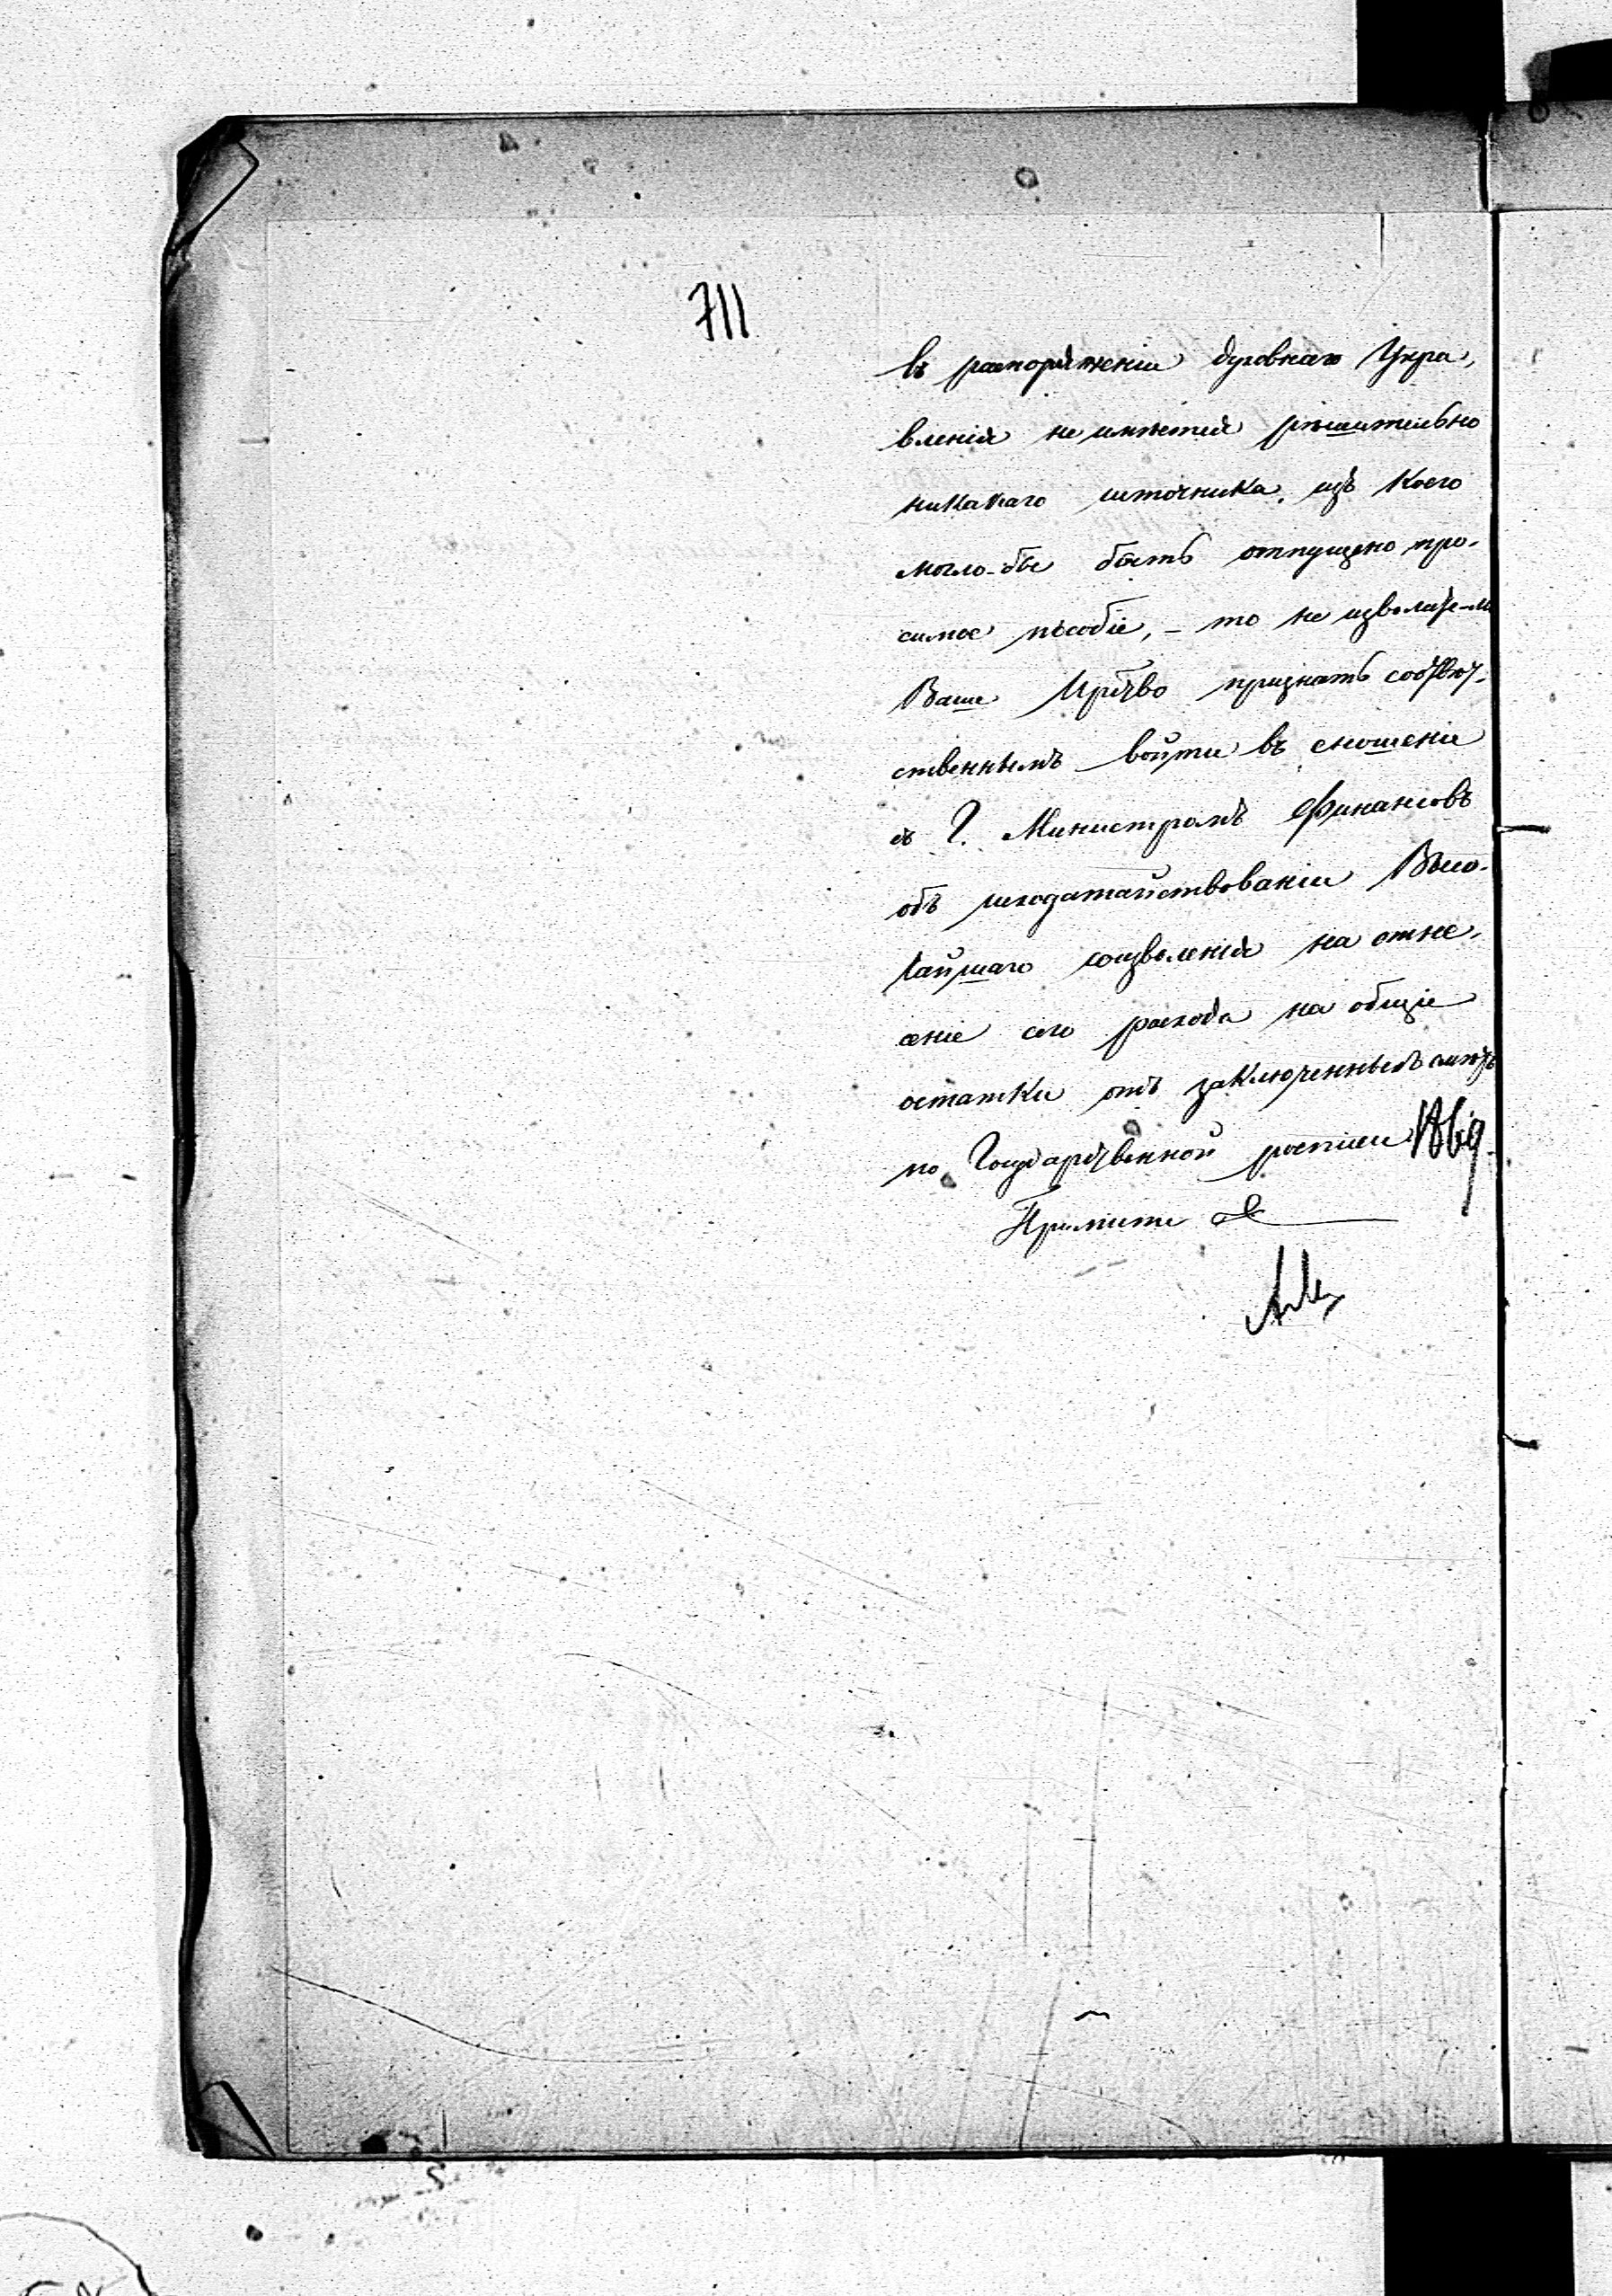 711
въ распоряженіи духовнаго Упра-
вленія не имѣется рѣшительно
никакаго источника, изъ коего
могло-бы быть отпущено про-
симое пособіе, – то не изволите-ли
Ваше признать соотвѣт-
ственнымъ войти въ сношеніе
съ Г. Министромъ Финансовъ
объ исходатайствованіи Высо-
чайшаго соизволенія на отне-
сеніе сего расхода на общіе
остатки отъ заключенныхъ смѣтъ
по Государственной росписи
Примите